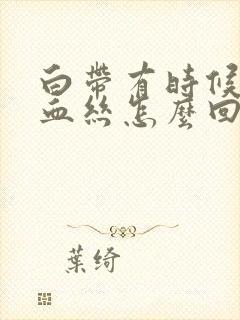 白帶有時候
血絲怎麼回
葉綺